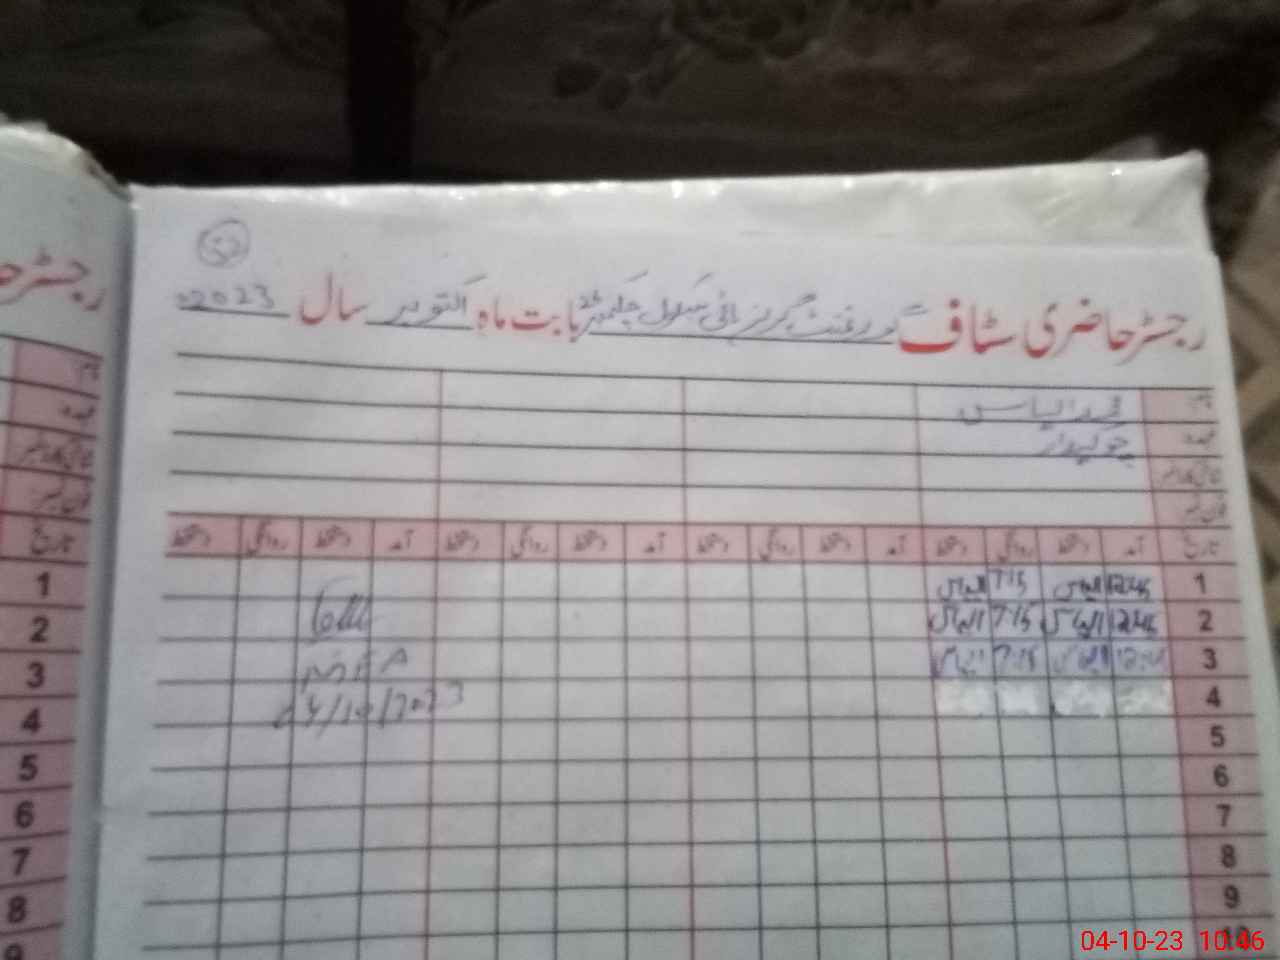 52
رجسٹر حاضری سٹاف گورنمنٹ گرلز ہائی سکول چک نمبر 26 بابت ماہ اکتوبر سال 2023
رجسٹر حا
نام: محمد الیاس
عہدہ چوکیدار
شناختی کارڈ نمبر
فون نمبر:
تاریخ آمد دستخط روانگی دستخط آمد دستخط روانگی دستخط آمد دستخط روانگی دستخط آمد دستخط روانگی دستخط
1 12:45 الیاس 7:15 الیاس
2 12:45 الیاس 7:15 الیاس
3 الیاس 7:15 الیاس
4
5
6
7
8
9
10
MEA
04/10/2023
نام:
عہدہ
شناختی کارڈ نمبر
فون نمبر:
تاریخ
1
2
3
4
5
6
7
8
9
04-10-23 10:46